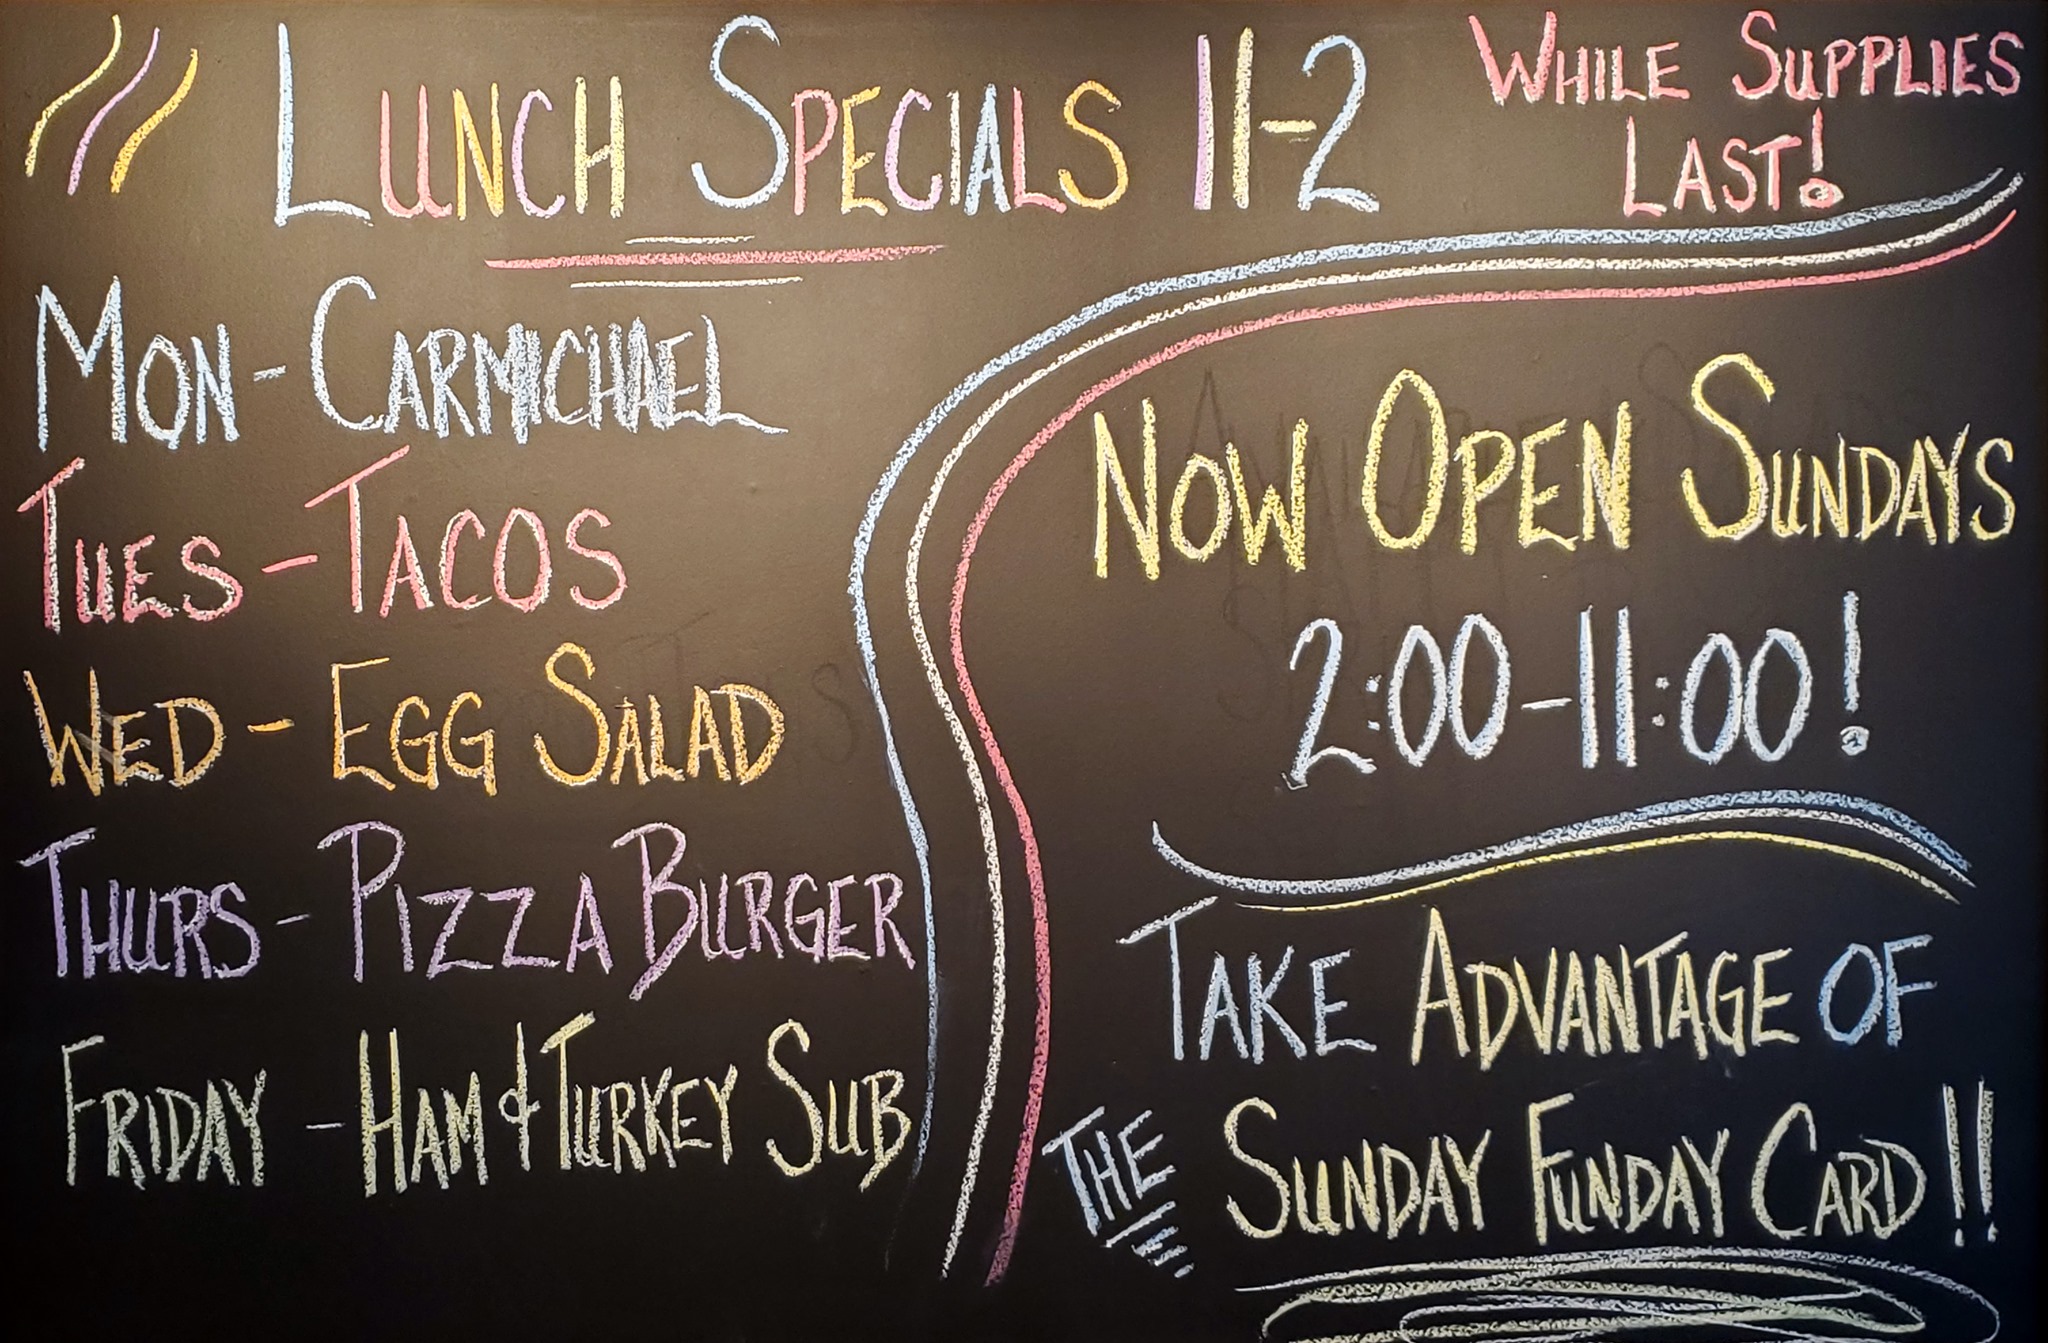 LUNCH SPECIALS 11-2
WHILE SUPPLIES
LAST!
MON - CARMICHAEL
TUES - TACOS
WED - EGG SALAD
THURS - PIZZA BURGER
FRIDAY - HAM & TURKEY SUB
NOW OPEN SUNDAYS
2:00-11:00!
TAKE ADVANTAGE OF
THE SUNDAY FUNDAY CARD!!